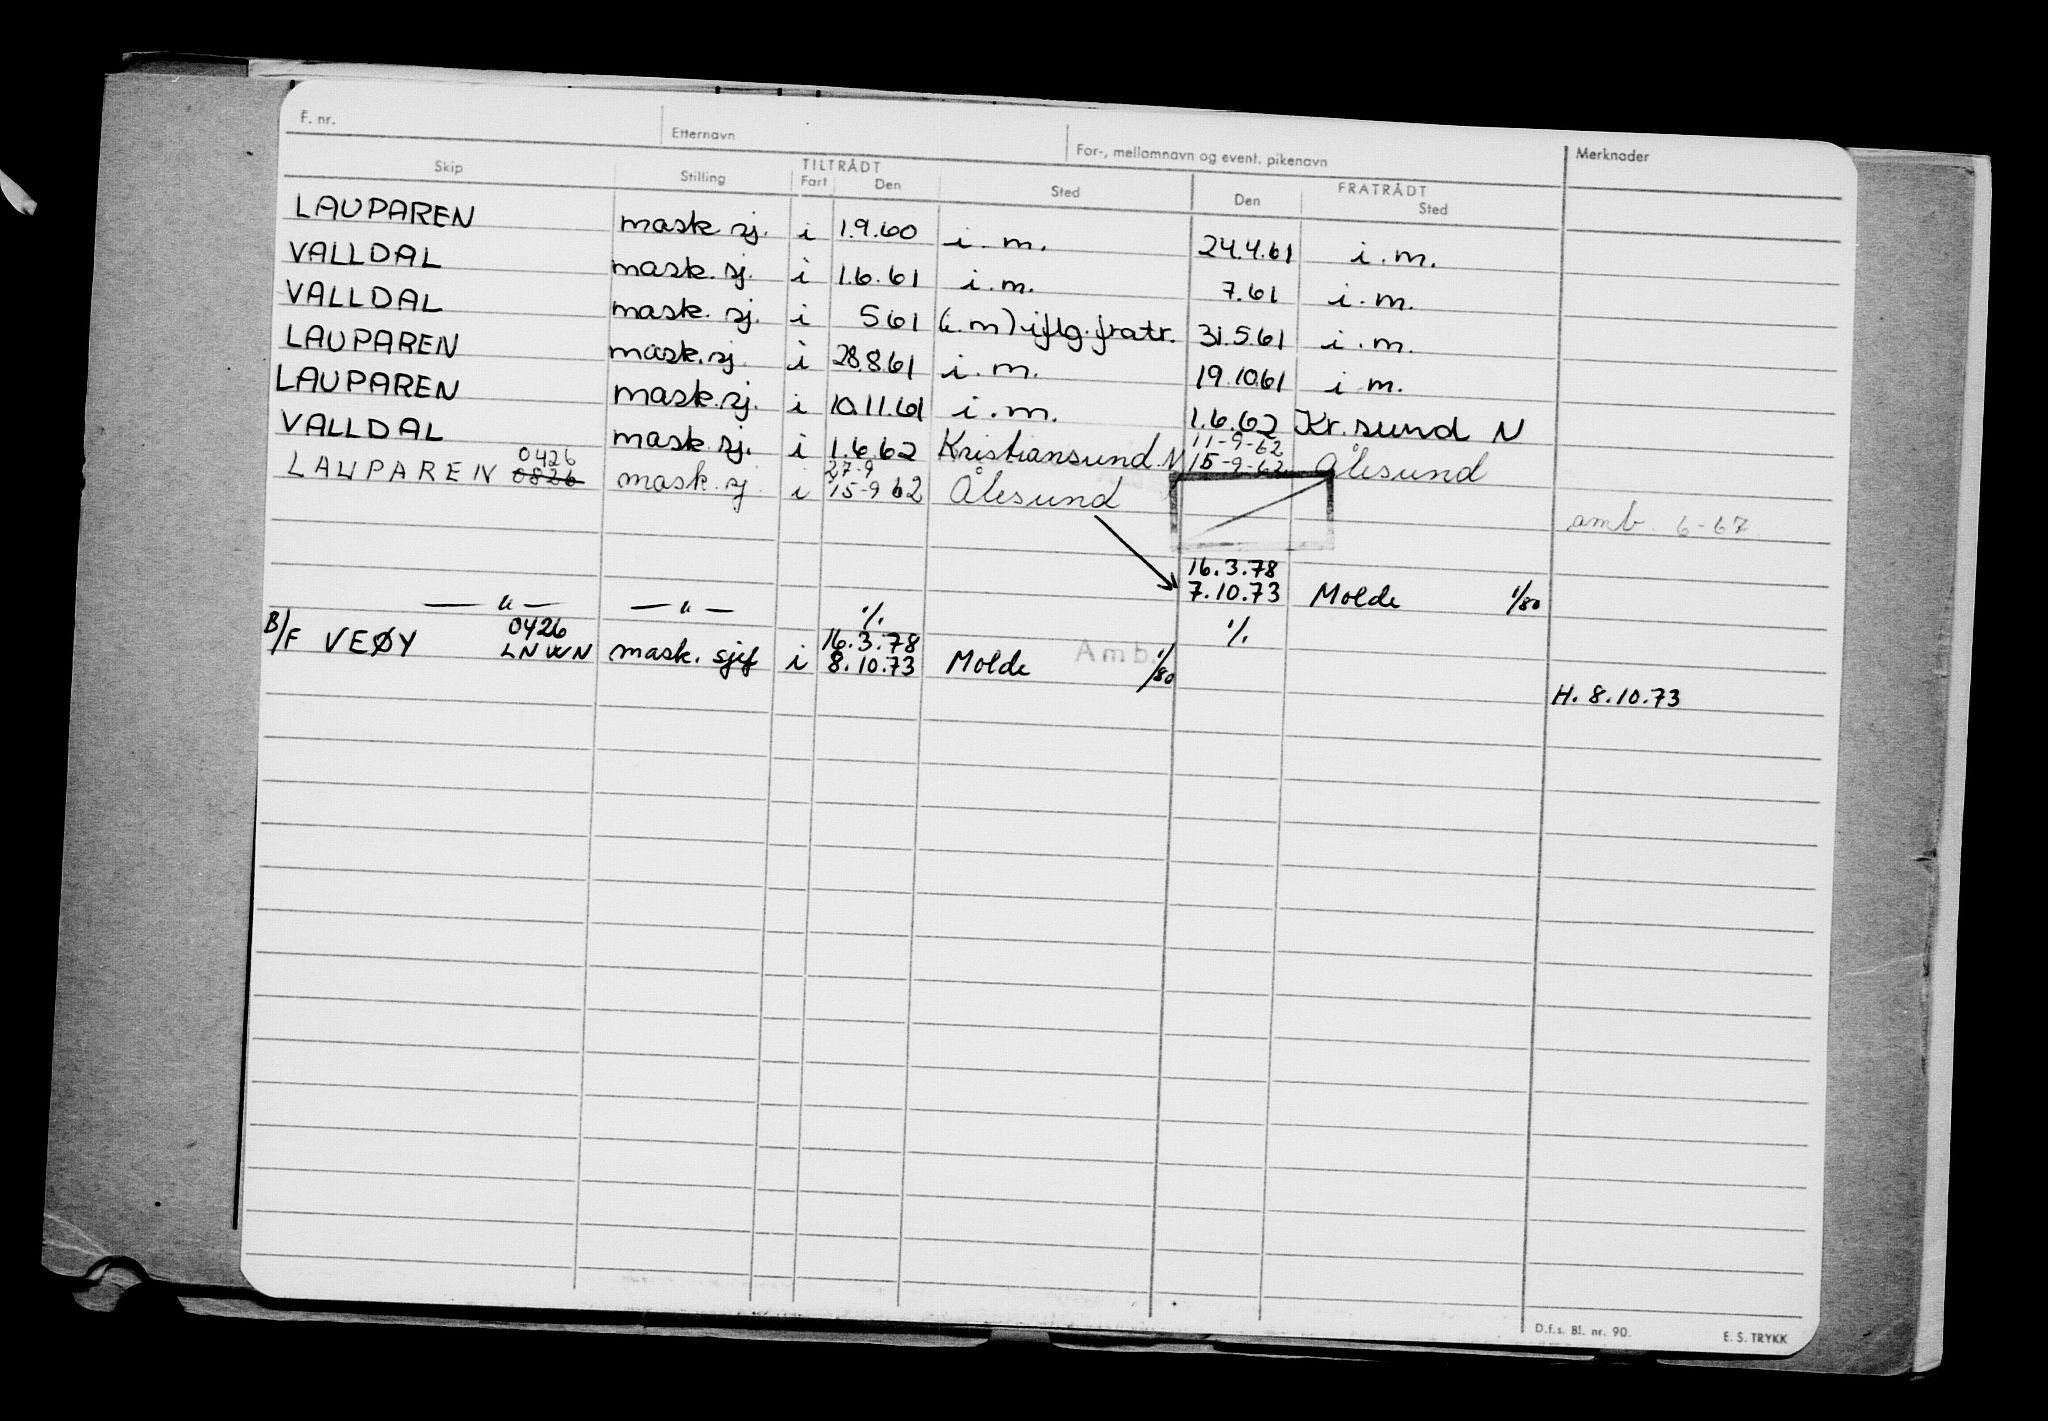 F. nr. Etternavn For-, mellomnavn og event. pikenavn Merknader
Skip Stilling TILTRÅDT Fart Den Sted FRATRÅDT Den Sted
LAUPAREN mask. sj. i 1.9.60 i. m. 24.4.61 i. m.
VALLDAL mask. sj. i 1.6.61 i. m. 7.61 i. m.
VALLDAL mask. sj. i 5 61 (i. m) iflg. fratr. 31.5.61 i. m.
LAUPAREN mask. sj. i 28.8.61 i. m. 19.10.61 i m.
LAUPAREN mask. sj. i 10.11.61 i. m. 1.6.62 Kr. sund N
11-9-62
VALLDAL mask. sj. i 1.6.62 Kristiansund. N 15-9-62 Ålesund
0426 27-9
LAUPAREN 0826 mask. sj i 15-9 62 Ålesund
amb. 6-67
16.3.78
7.10.73 Molde 1/80
— " — — " — ./. ./.
0426 16.3.78
B/F VEØY LNWN mask. sjef i 8.10.73 Molde Amb. 1/80
H. 8.10.73
D.f.s. Bl. nr. 90. E. S. TRYKK